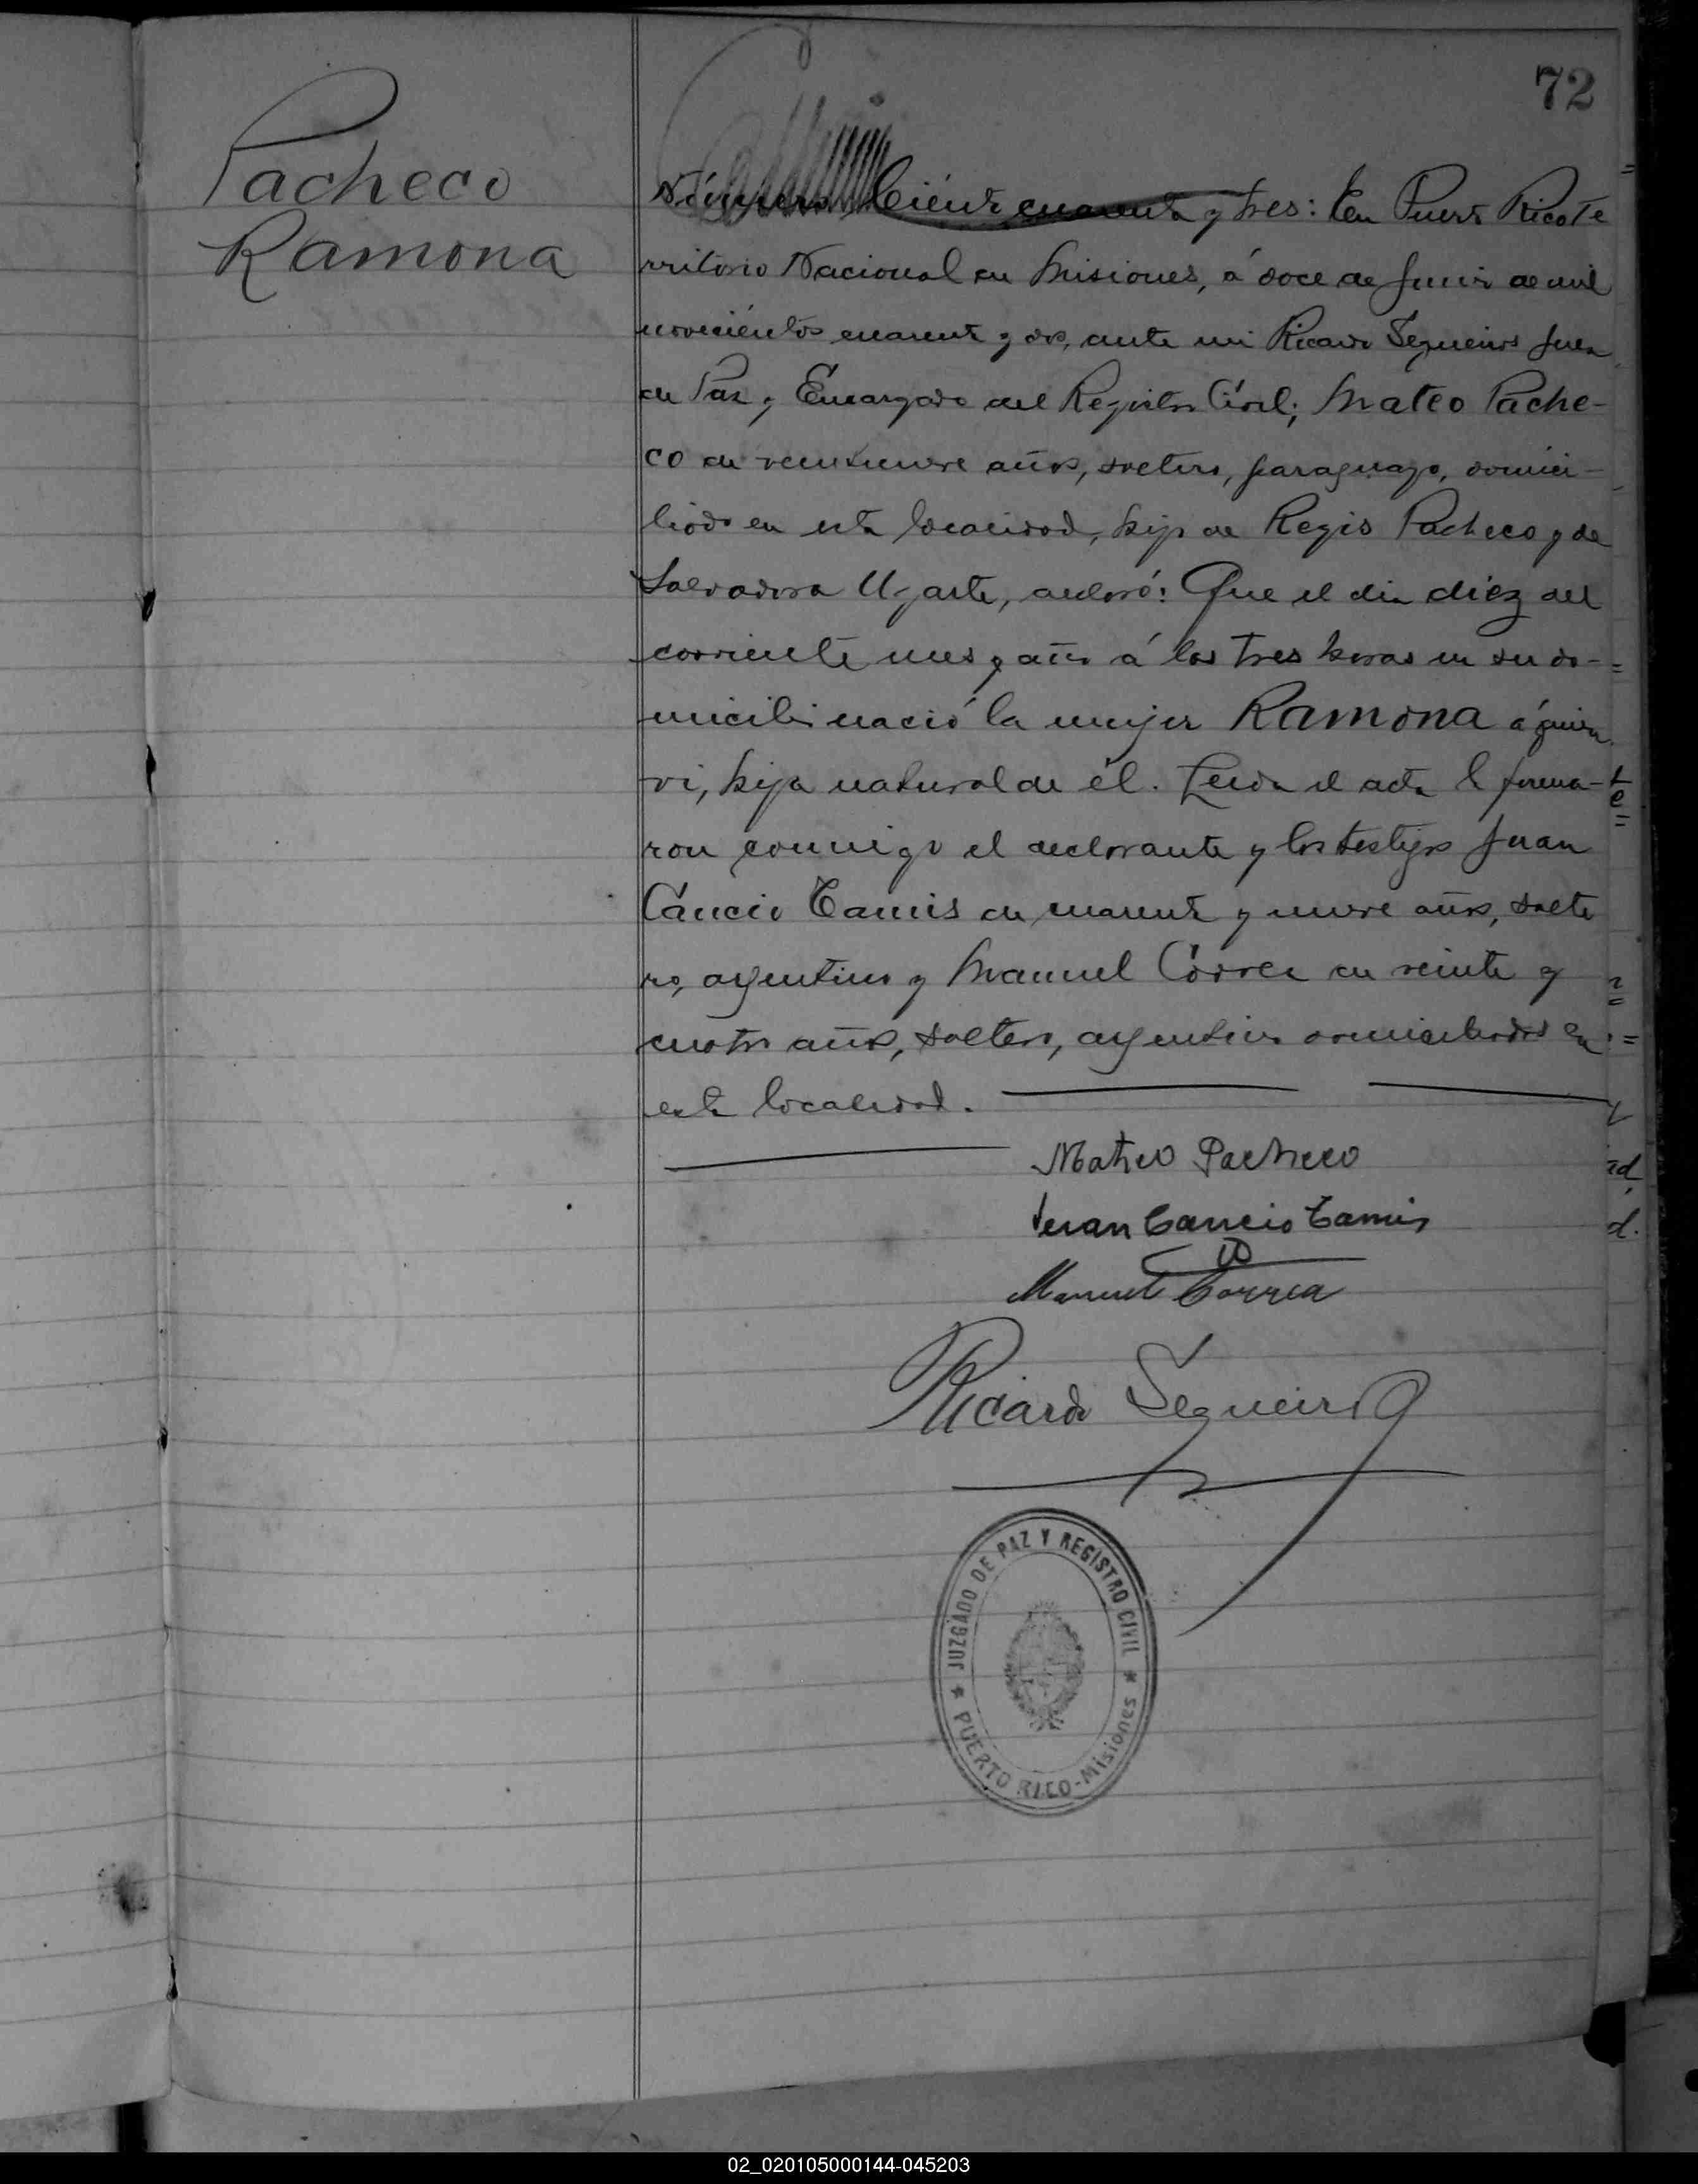 72
Pacheco
Ramona
Número Ciento cuarenta y tres: En Puerto Rico Te
rritorio Nacional de Misiones, á doce de Junio de mil
novecientos cuarenta y dos, ante mi Ricardo Sequeiros Juez
de Paz y Encargado del Registro Civil; Mateo Pache-
co de veintinueve años, soltero, paraguayo, domici-
liado en esta localidad, hijo de Regis Pacheco y de
Salvadora Ugarte, declaró: Que el dia diez del
corriente mes y año á las tres horas en su do-
micilio nació la mujer Ramona á quien
vi, hija natural de él. Leida el acta la firma-
ron conmigo el declarante y los testigos Juan
Cáncio Tamis de cuarenta y nueve años, solte
ro, argentino y Manuel Correa de veinte y
cuatro años, soltero, argentino domiciliados en
esta localidad.
Mateo Pacheco
Juan Cancio Tamis
Manuel Correa
Ricardo Sequeiros
JUZGADO DE PAZ Y REGISTRO CIVIL
PUERTO RICO-Misiones
02_020105000144-045203